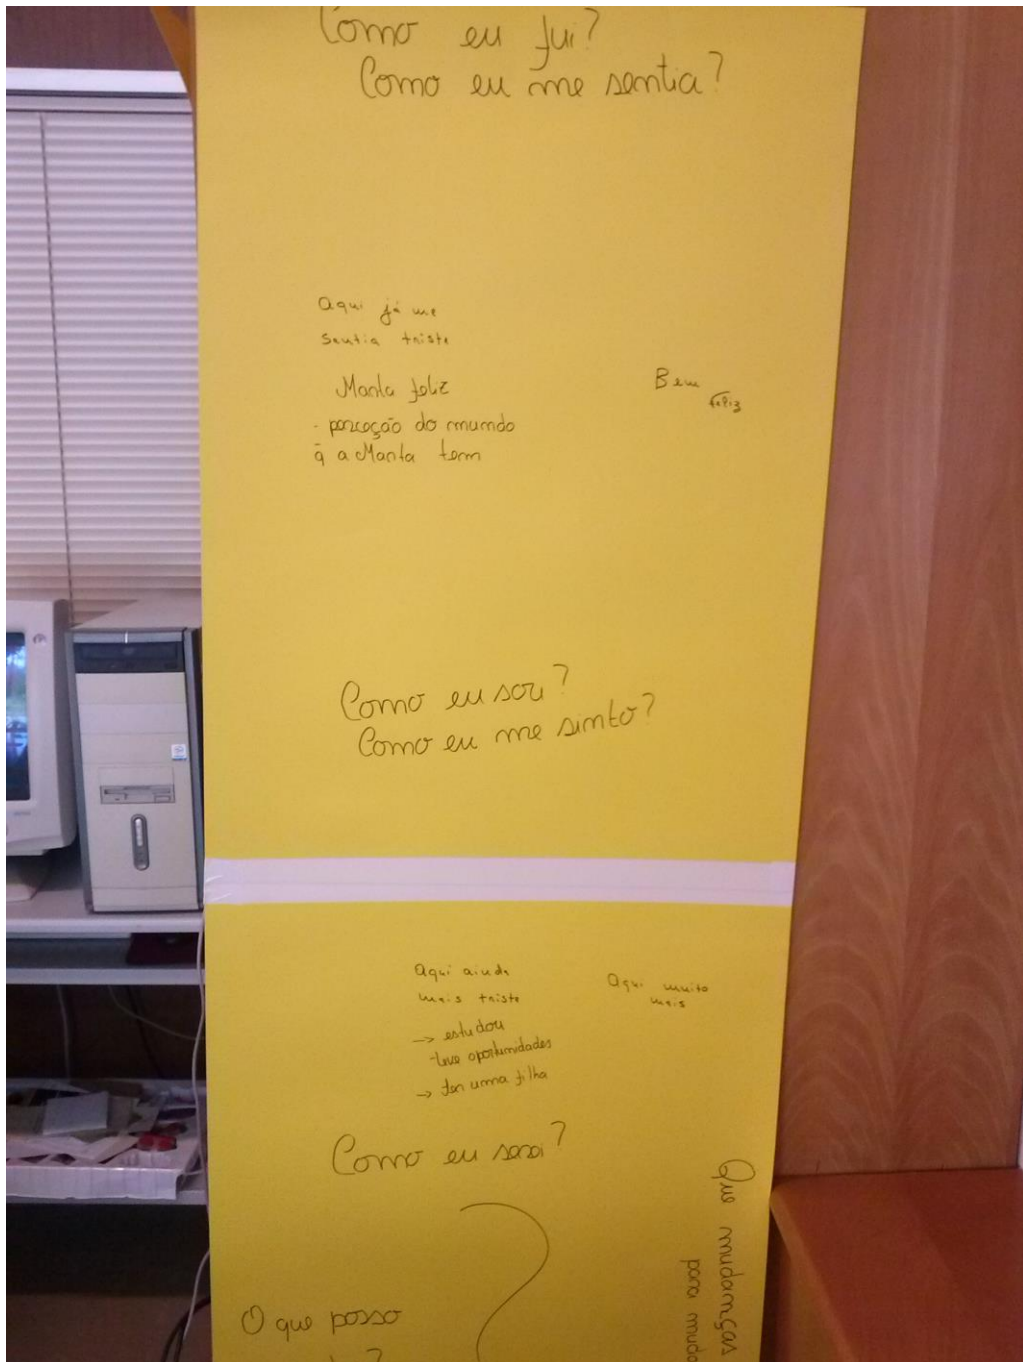 Como eu fui?
Como eu me sentia?
Aqui já me
sentia triste
Marta feliz
- perceção do mundo
q a Marta tem
Bem
feliz
Como eu sou?
Como eu me sinto?
Aqui ainda
mais triste
→ estudou
- teve oportunidades
→ ter uma filha
Aqui muito
mais
Como eu serei?
?
O que posso
Que mudanças
para muda